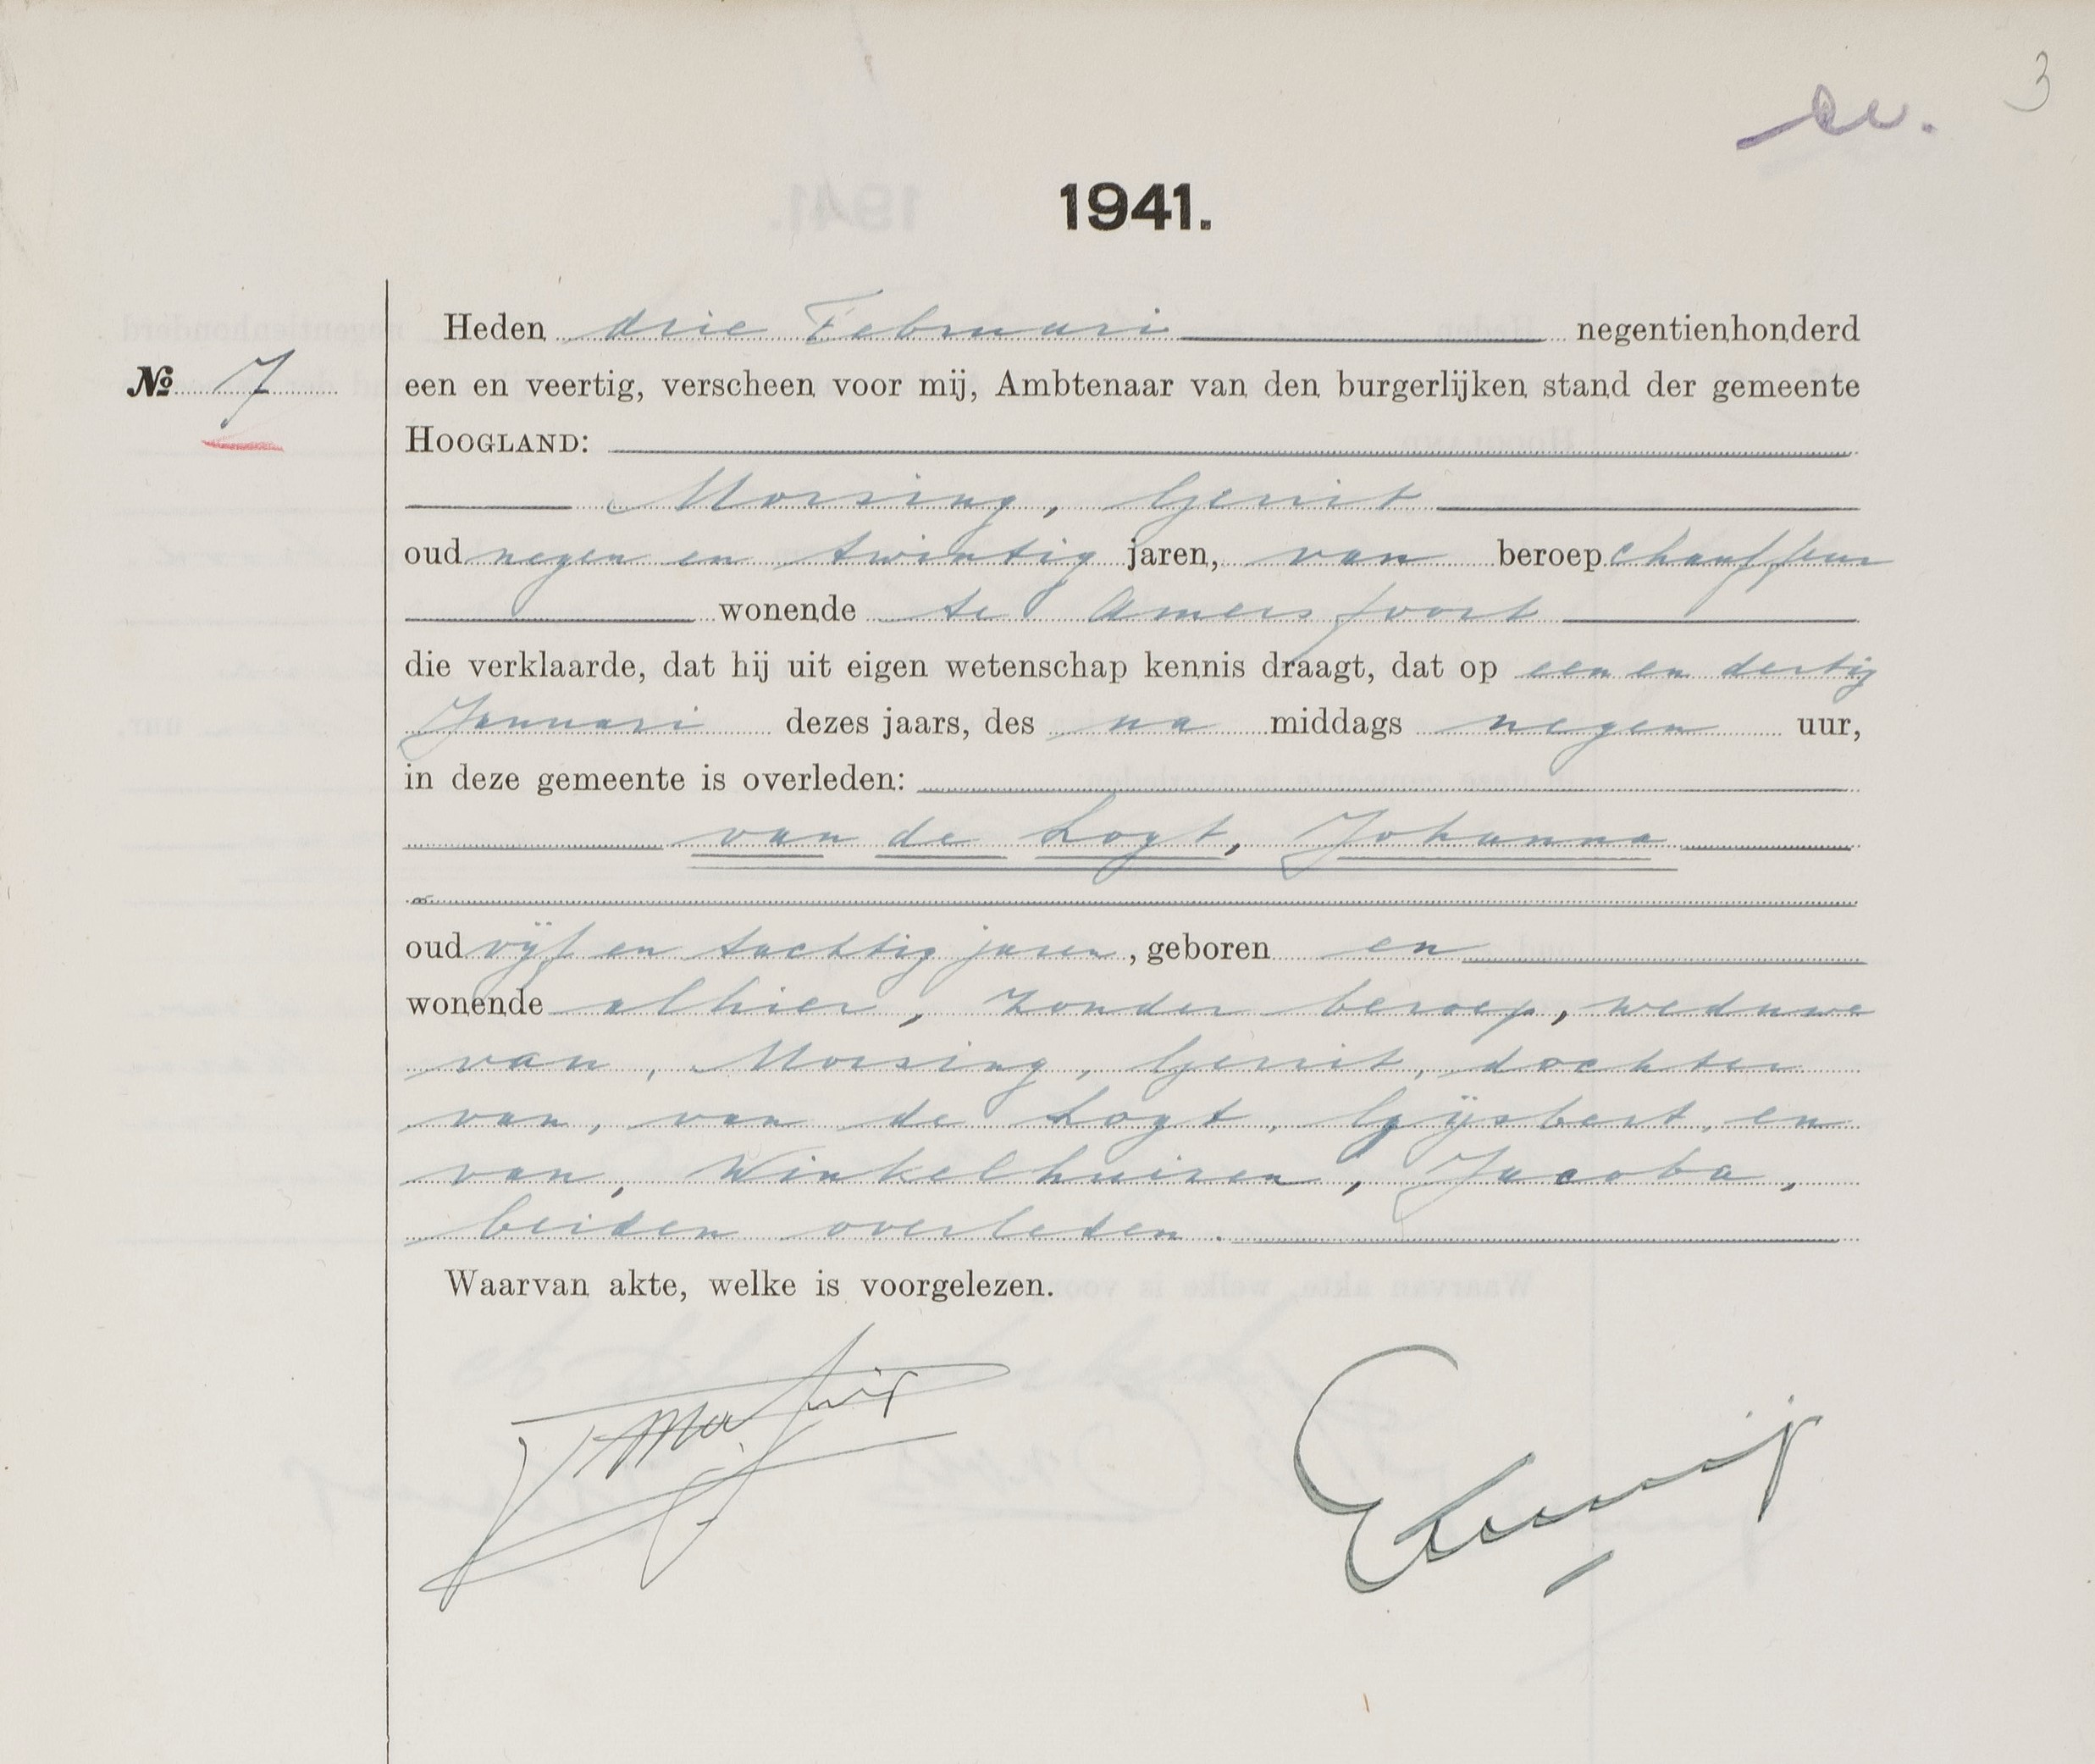 3
1941.
Heden drie Februari negentienhonderd
No 7
een en veertig, verscheen voor mij, Ambtenaar van den burgerlijken stand der gemeente
HOOGLAND:
Morsing, Gerrit
oud negen en twintig jaren, van beroep chauffeur
wonende te Amersfoort
die verklaarde, dat hij uit eigen wetenschap kennis draagt, dat op een en dertig
Januari dezes jaars, des na middags negen uur,
in deze gemeente is overleden:
van de Logt, Johanna
oud vijf en tachtig jaren, geboren en
wonende alhier, zonder beroep, weduwe
van, Morsing, Gerrit, dochter
van, van de Logt, Gijsbert, en
van, Winkelhuizen, Jacoba,
beiden overleden.
Waarvan akte, welke is voorgelezen.